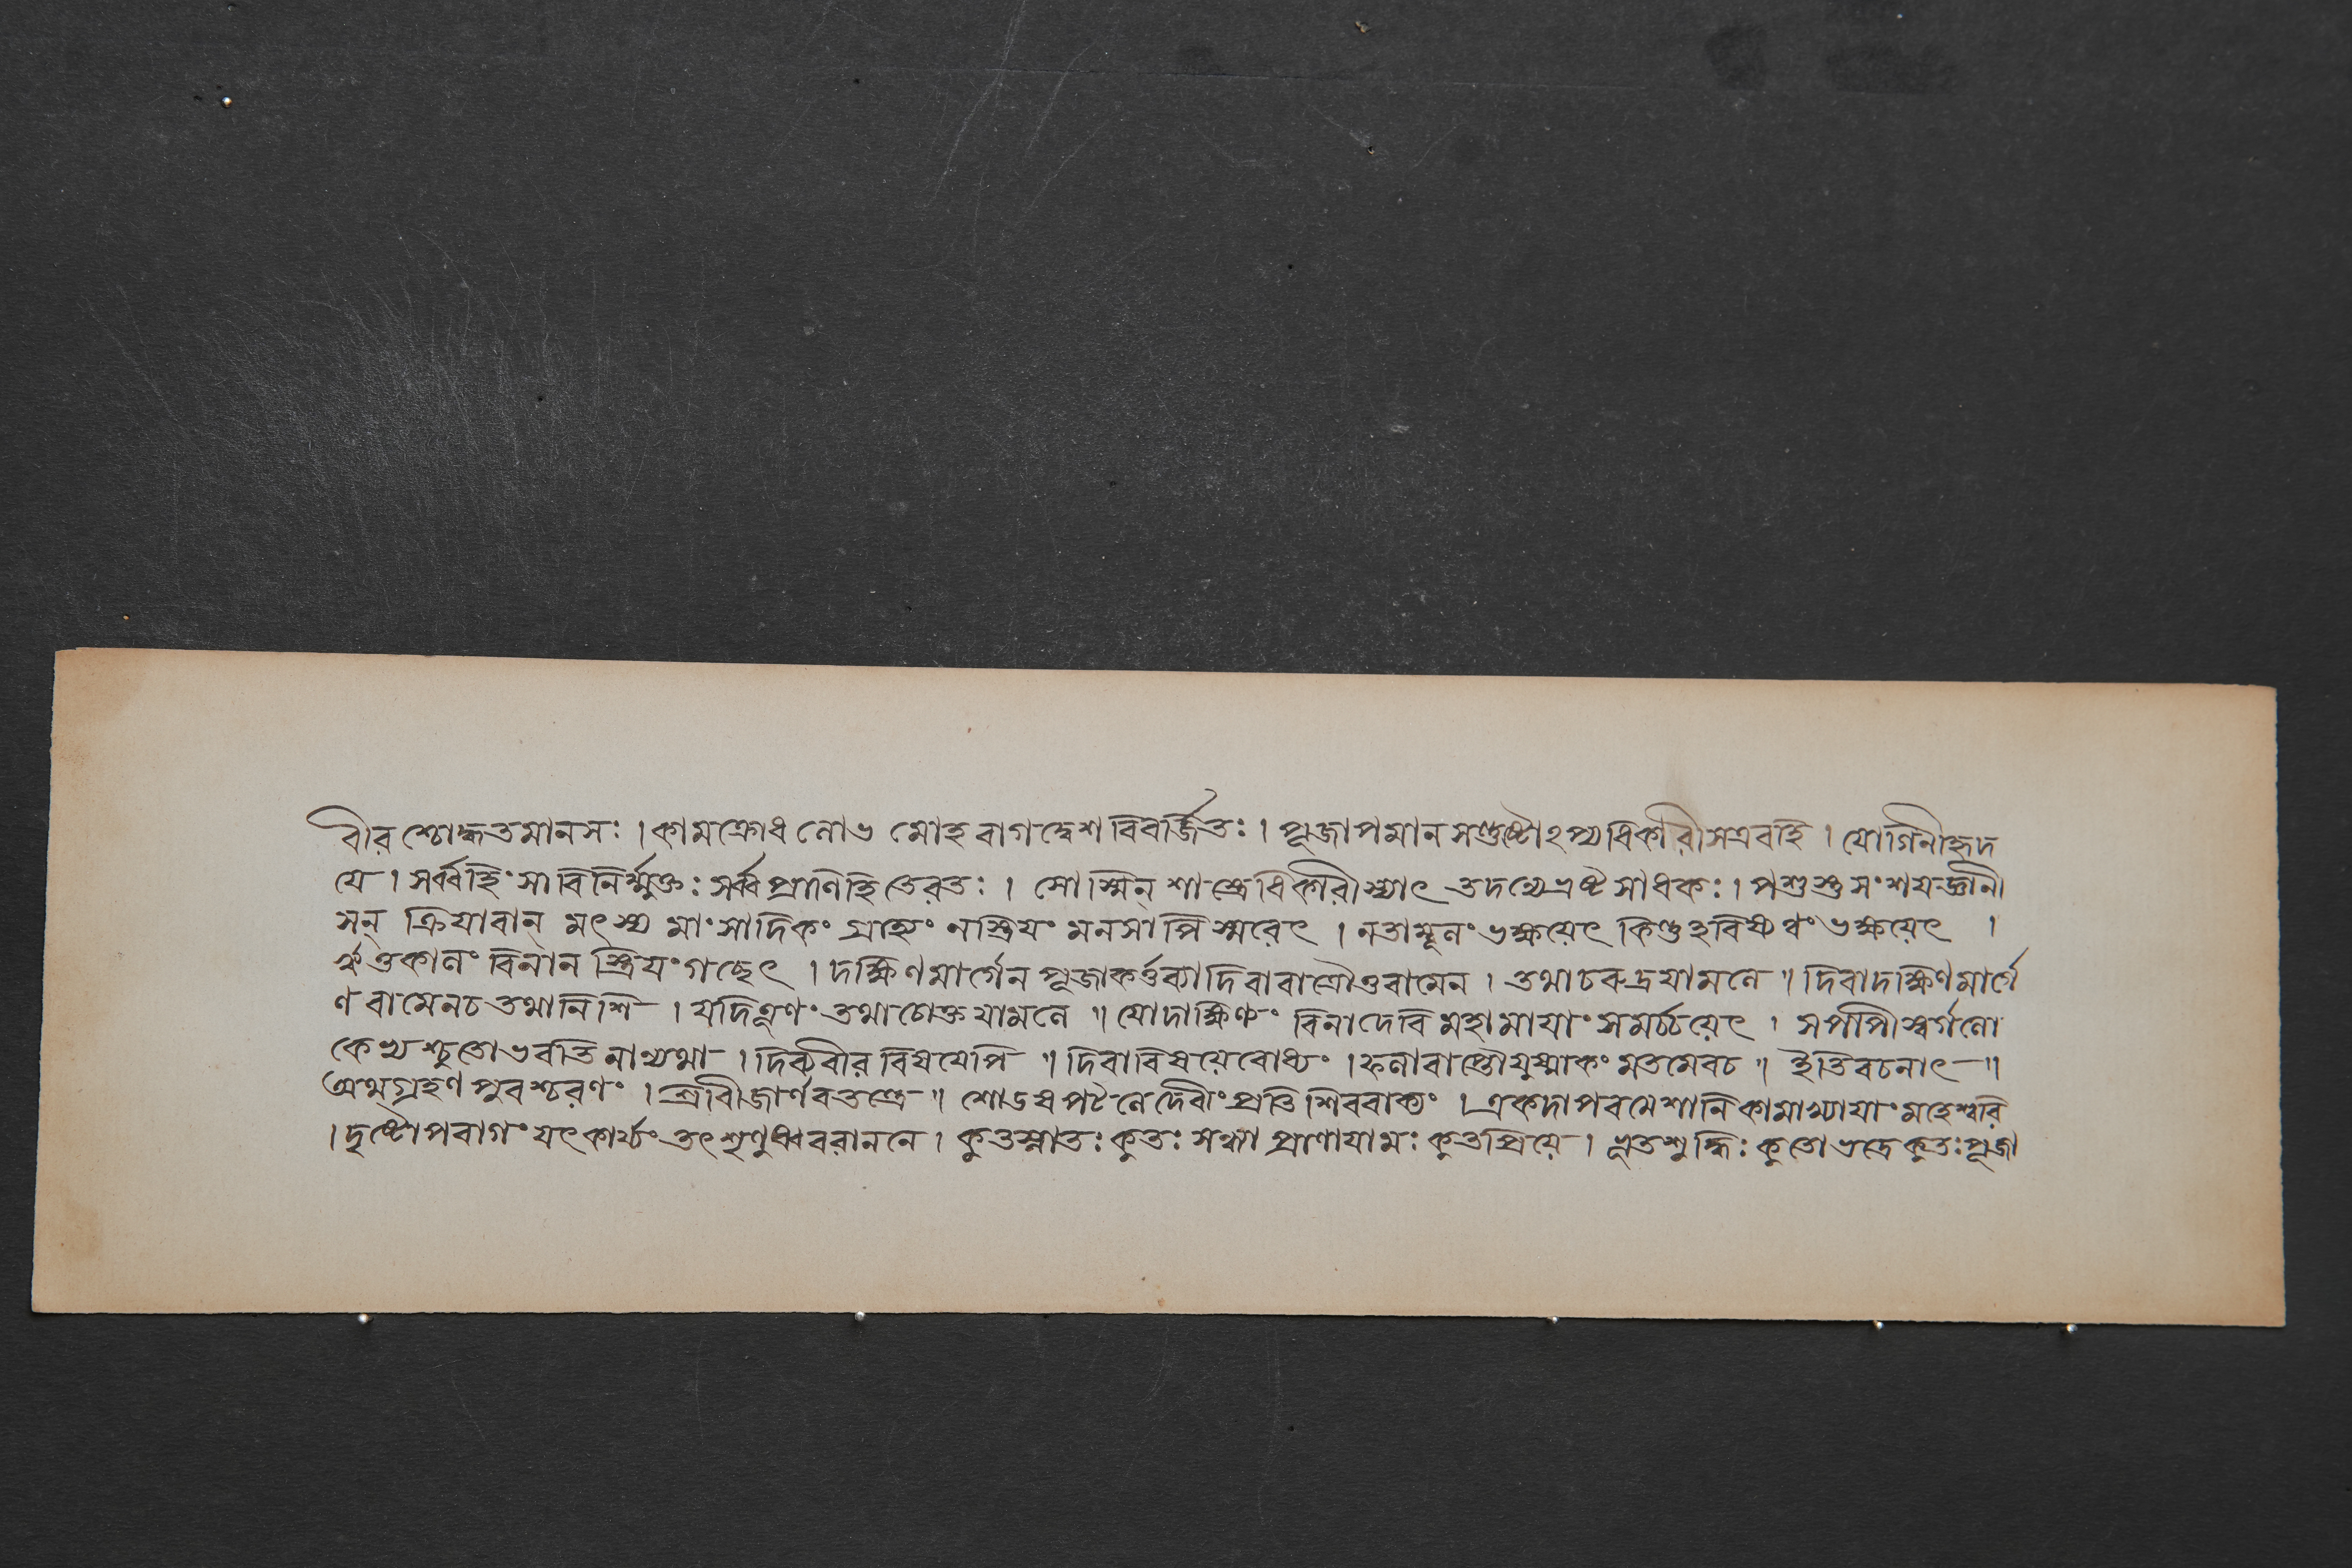 বীর শ্চোদ্ধতমানসঃ । কামক্রোধ লোভ মোহ রাগদ্বেশ বিবর্জ্জিতঃ । পূজাপমানসন্তুষ্টোঽপ্যধিকারী সএবহি । যোগিনীহৃদ
য়ে । সর্ব্বহিংসা বিনির্ম্মুক্তঃ সর্ব্বপ্রাণিহিতেরতঃ । সোস্মিন্ শাস্ত্রেধিকারীস্যাৎ তদন্যেভ্রষ্ট সাধকঃ । পশুস্তুসংশয়জ্ঞানী
সন্ ক্রিয়াবান্ মৎস্য মাংসাদিকং গ্রাহ্যং নস্ত্রিয়ং মনসাপি স্মরেৎ । নতাম্বূলং ভক্ষয়েৎ কিন্তুহবিষ্যন্নং ভক্ষয়েৎ ।
ঋতুকালং বিনান স্ত্রিয়ংগচ্ছেৎ । দক্ষিণমার্গেন পূজাকর্ত্তব্যাদিবারাত্রৌতুবামেন । তথাচরুদ্রযামলে ॥ দিবাদক্ষিণমার্গে
ণ বামেনচ তথানিশি । যদিগ্রহণং তথাচোক্তযামলে ॥ যোদাক্ষিণ্যং বিনাদেবি মহামায়াং সমর্চ্চয়েৎ । সপাপীস্বর্গলো
কেভ্যশ্চ্যুতোভবতি নান্যথা । দিব্যবীর বিষয়েপি ॥ দিবাবিষয়েবোধ্যং । ফলাবাপ্তৌযুষ্মাকং মতমেবচ ॥ ইতিবচনাৎ ॥
অথগ্রহণ পুরশ্চরণং । শ্রীবীজার্ণবতন্ত্রে ॥ শোডষপটলেদেবীংপ্রতি শিববাক্যং । একদাপরমেশানিকামাখ্যায়াংমহেশ্বরি
। দৃষ্টোপরাগং যৎকার্য্যং তৎ শৃণুষ্ববরাননে । কৃতস্নাতঃ কৃতঃ সন্ধ্যা প্রাণায়ামঃ কৃতপ্রিয়ে । ভূতশুদ্ধিঃ কৃতোভদ্রে কৃতঃপূজা